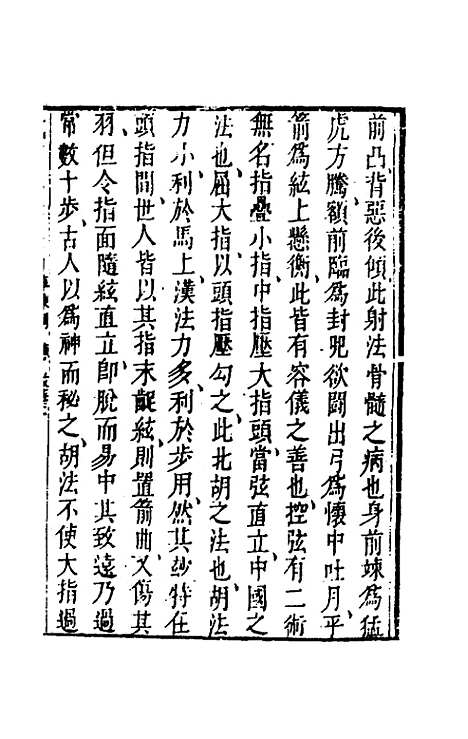 前凸背惡後傾此射法骨髓之病也身前竦為猛
虎方騰額前臨為封兕欲鬪出弓為懷中吐月平
箭為絃上懸衡此皆有容儀之善也控弦有二術
無名指疊小指中指壓大指頭當弦直立中國之
法也屈大指以頭指壓勾之此北胡之法也胡法
力小利於馬上漢法力多利於步用然其妙特在
頭指間世人皆以其指末齪絃則置箭曲又傷其
羽但令指面隨絃直立即脫而易中其致遠乃過
常數十步古人以為神而秘之胡法不使大指過